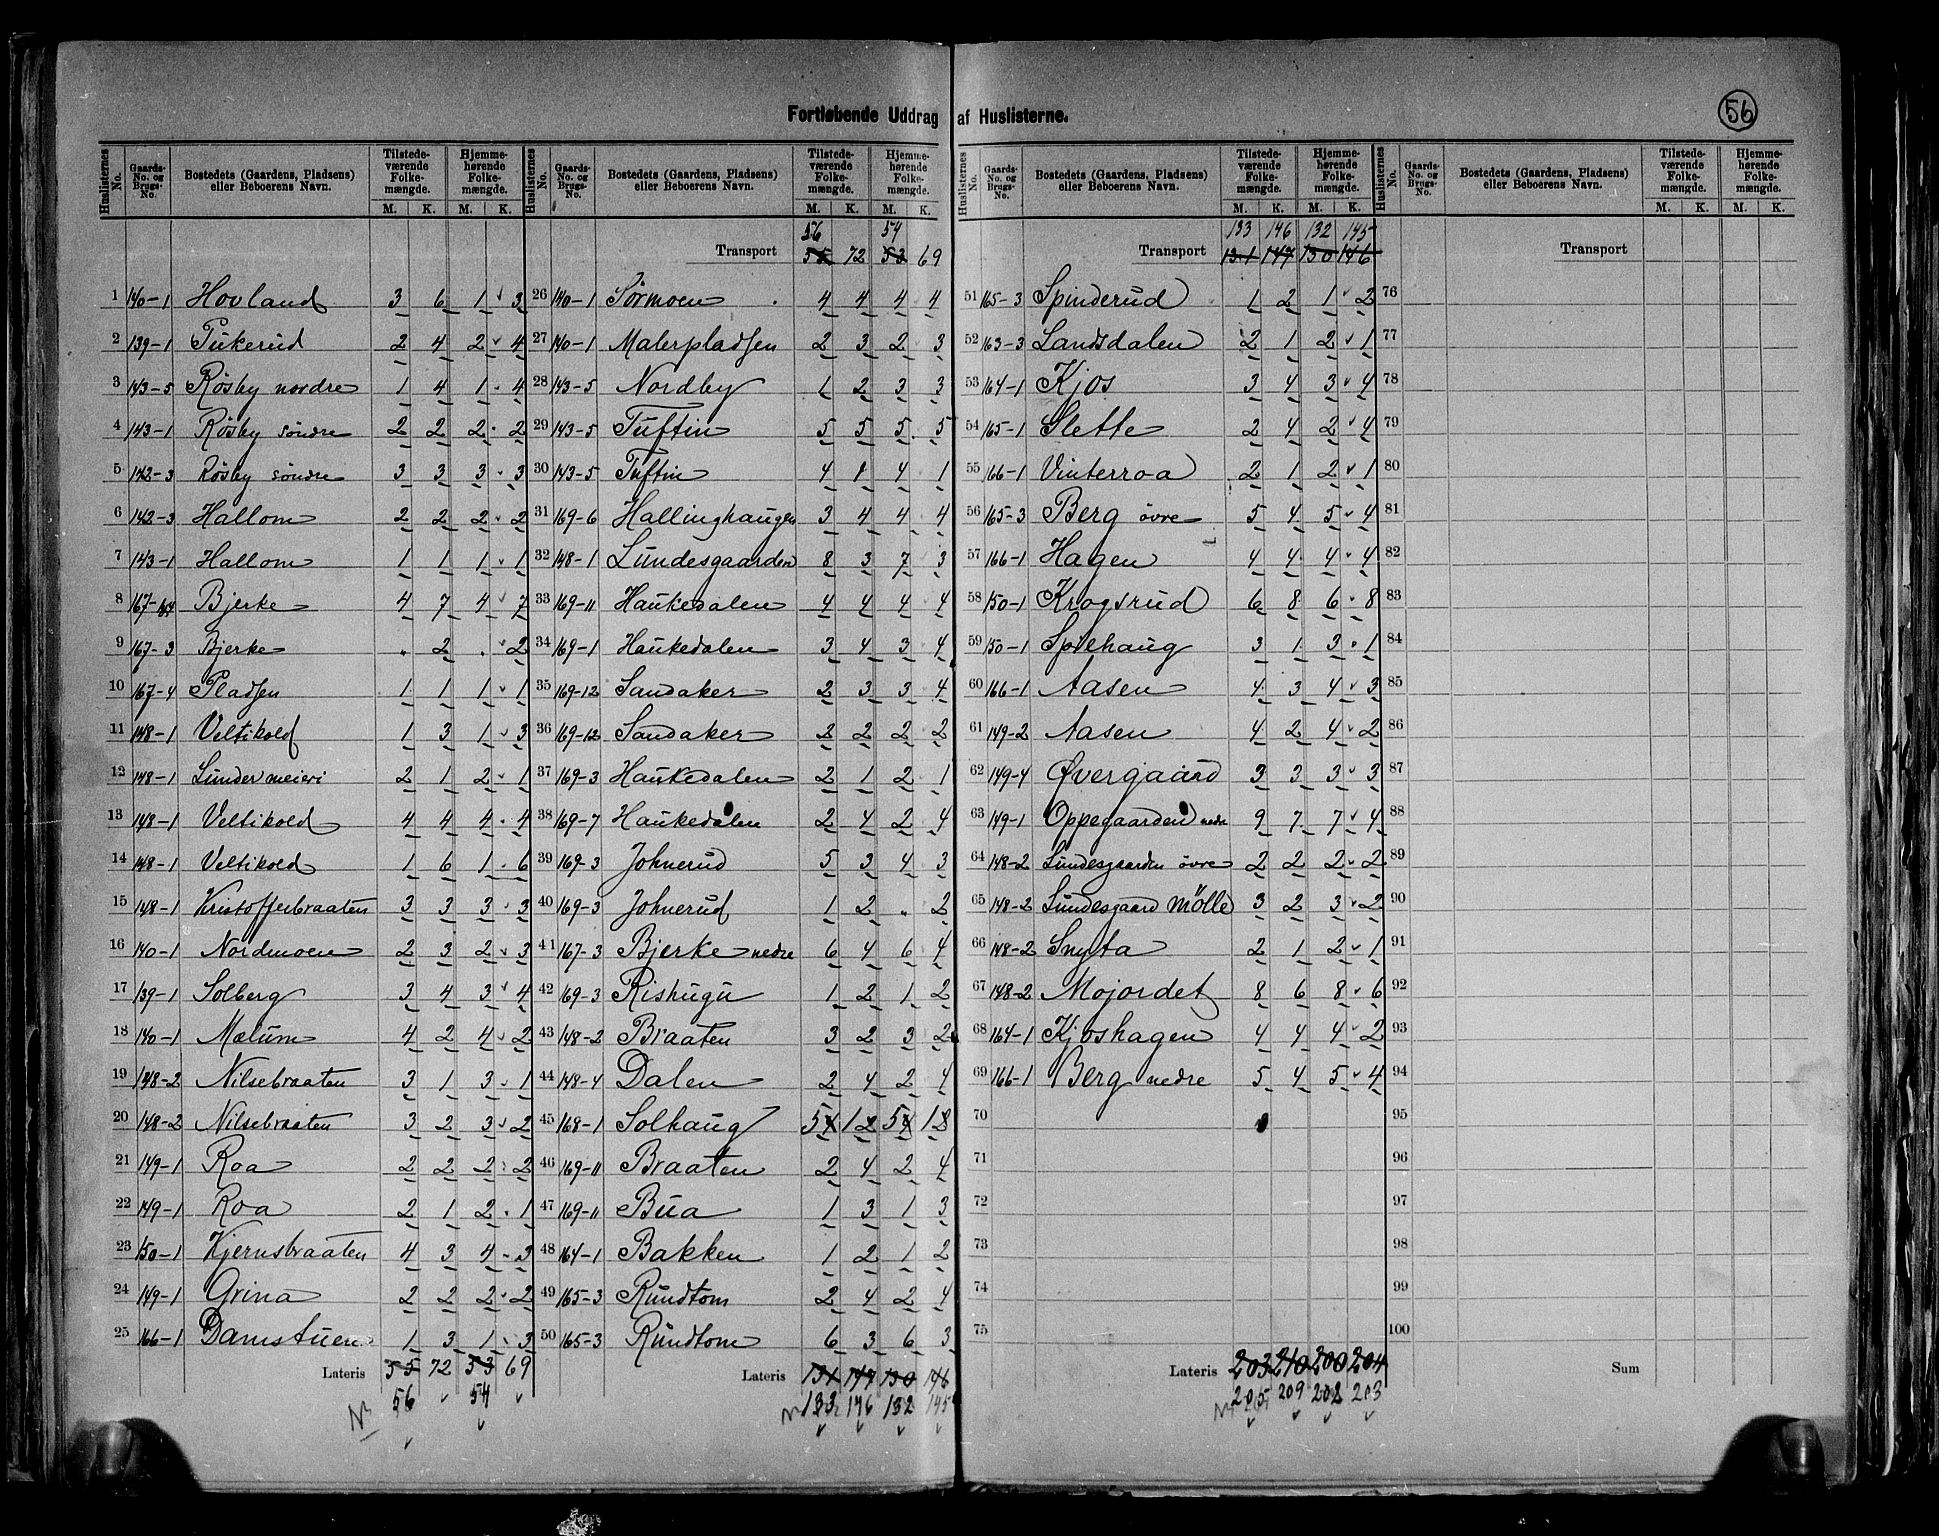 Fortløbende Uddrag af Huslisterne.
56
Huslisternes No. | Gaards-No. og Brugs-No. | Bostedets (Gaardens, Pladsens) eller Beboerens Navn. | Tilstedeværende Folkemængde. M. K. | Hjemmehørende Folkemængde. M. K.
1 140-1 Hovland 3 6 1 3
2 139-1 Tukerud 2 4 2 4
3 143-5 Røsby nordre 1 4 1 4
4 143-1 Røsby søndre 2 2 2 2
5 142-3 Røsby søndre 3 3 3 3
6 142-3 Hallom 2 2 2 2
7 143-1 Hallom 1 1 1 1
8 Bjerke 4 7 4 7
9 167-3 Bjerke . 2 . 2
10 167-4 Pladsen 1 1 1 1
11 148-1 Veltikold 1 3 1 3
12 148-1 Lunder meieri 2 1 2 1
13 148-1 Veltikold 4 4 4 4
14 148-1 Veltikold 1 6 1 6
15 148-1 Kristofferbraaten 3 3 3 3
16 140-1 Nordmoen 2 3 2 3
17 139-1 Solberg 3 4 3 4
18 140-1 Mælum 4 2 4 2
19 148-2 Nilsebraaten 3 1 3 1
20 148-2 Nilsebraaten 3 2 3 2
21 149-1 Roa 2 2 2 2
22 149-1 Roa 2 1 2 1
23 150-1 Kjernsbraaten 4 3 4 3
24 149-1 Grina 2 2 2 2
25 166-1 Damstuen 1 3 1 3
Lateris 55 72 53 69
56 54
Huslisternes No. | Gaards-No. og Brugs-No. | Bostedets (Gaardens, Pladsens) eller Beboerens Navn. | Tilstedeværende Folkemængde. M. K. | Hjemmehørende Folkemængde. M. K.
56 54
Transport 55 72 53 69
26 140-1 Sørmoen 4 4 4 4
27 140-1 Malerpladsen 2 3 2 3
28 143-5 Nordby 1 2 3 3
29 143-5 Tuftin 5 5 5 5
30 143-5 Tuftin 4 1 4 1
31 169-6 Hallinghaugen 3 4 4 4
32 148-1 Lundesgaarden 8 3 7 3
33 169-11 Haukedalen 4 4 4 4
34 169-1 Haukedalen 3 4 3 4
35 169-12 Sandaker 2 3 3 4
36 169-12 Sandaker 2 2 2 2
37 169-3 Haukedalen 2 1 2 1
38 169-7 Haukedalen 2 4 2 4
39 169-3 Johnerud 5 3 4 3
40 169-3 Johnerud 1 2 . 2
41 167-3 Bjerke nedre 6 4 6 4
42 169-3 Rishugu 1 2 1 2
43 148-2 Braaten 3 2 3 2
44 148-4 Dalen 2 4 2 4
45 168-1 Solhaug 5 1 5 1
46 169-11 Braaten 2 4 2 4
47 169-11 Bua 1 3 1 3
48 164-1 Bakken 1 2 1 2
49 165-3 Rundtom 2 4 2 4
50 165-3 Rundtom 6 3 6 3
Lateris 131 147 130 146
133 146 132 145
Huslisternes No. | Gaards-No. og Brugs-No. | Bostedets (Gaardens, Pladsens) eller Beboerens Navn. | Tilstedeværende Folkemængde. M. K. | Hjemmehørende Folkemængde. M. K.
133 146 132 145
Transport 131 147 130 146
51 165-3 Spinderud 1 2 1 2
52 163-3 Landsdalen 2 1 2 1
53 164-1 Kjos 3 4 3 4
54 165-1 Slette 2 4 2 4
55 166-1 Vinterroa 2 1 2 1
56 165-3 Berg øvre 5 4 5 4
57 166-1 Hagen 4 4 4 4
58 150-1 Krogsrud 6 8 6 8
59 150-1 Spilehaug 3 1 3 1
60 166-1 Aasen 4 3 4 3
61 149-2 Aasen 4 2 4 2
62 149-4 Øvergaard 3 3 3 3
63 149-1 Oppegaarden nedre 9 7 7 4
64 148-2 Lundesgaarden øvre 2 2 2 2
65 148-2 Lundesgaard Mølle 3 2 3 2
66 148-2 Snyta 2 1 2 1
67 148-2 Mojordet 8 6 8 6
68 164-1 Kjoshagen 4 4 4 2
69 166-1 Berg nedre 5 4 5 4
70
71
72
73
74
75
Lateris 203 210 200 204
205 209 202 203
Huslisternes No. | Gaards-No. og Brugs-No. | Bostedets (Gaardens, Pladsens) eller Beboerens Navn. | Tilstedeværende Folkemængde. M. K. | Hjemmehørende Folkemængde. M. K.
Transport
76
77
78
79
80
81
82
83
84
85
86
87
88
89
90
91
92
93
94
95
96
97
98
99
100
Sum